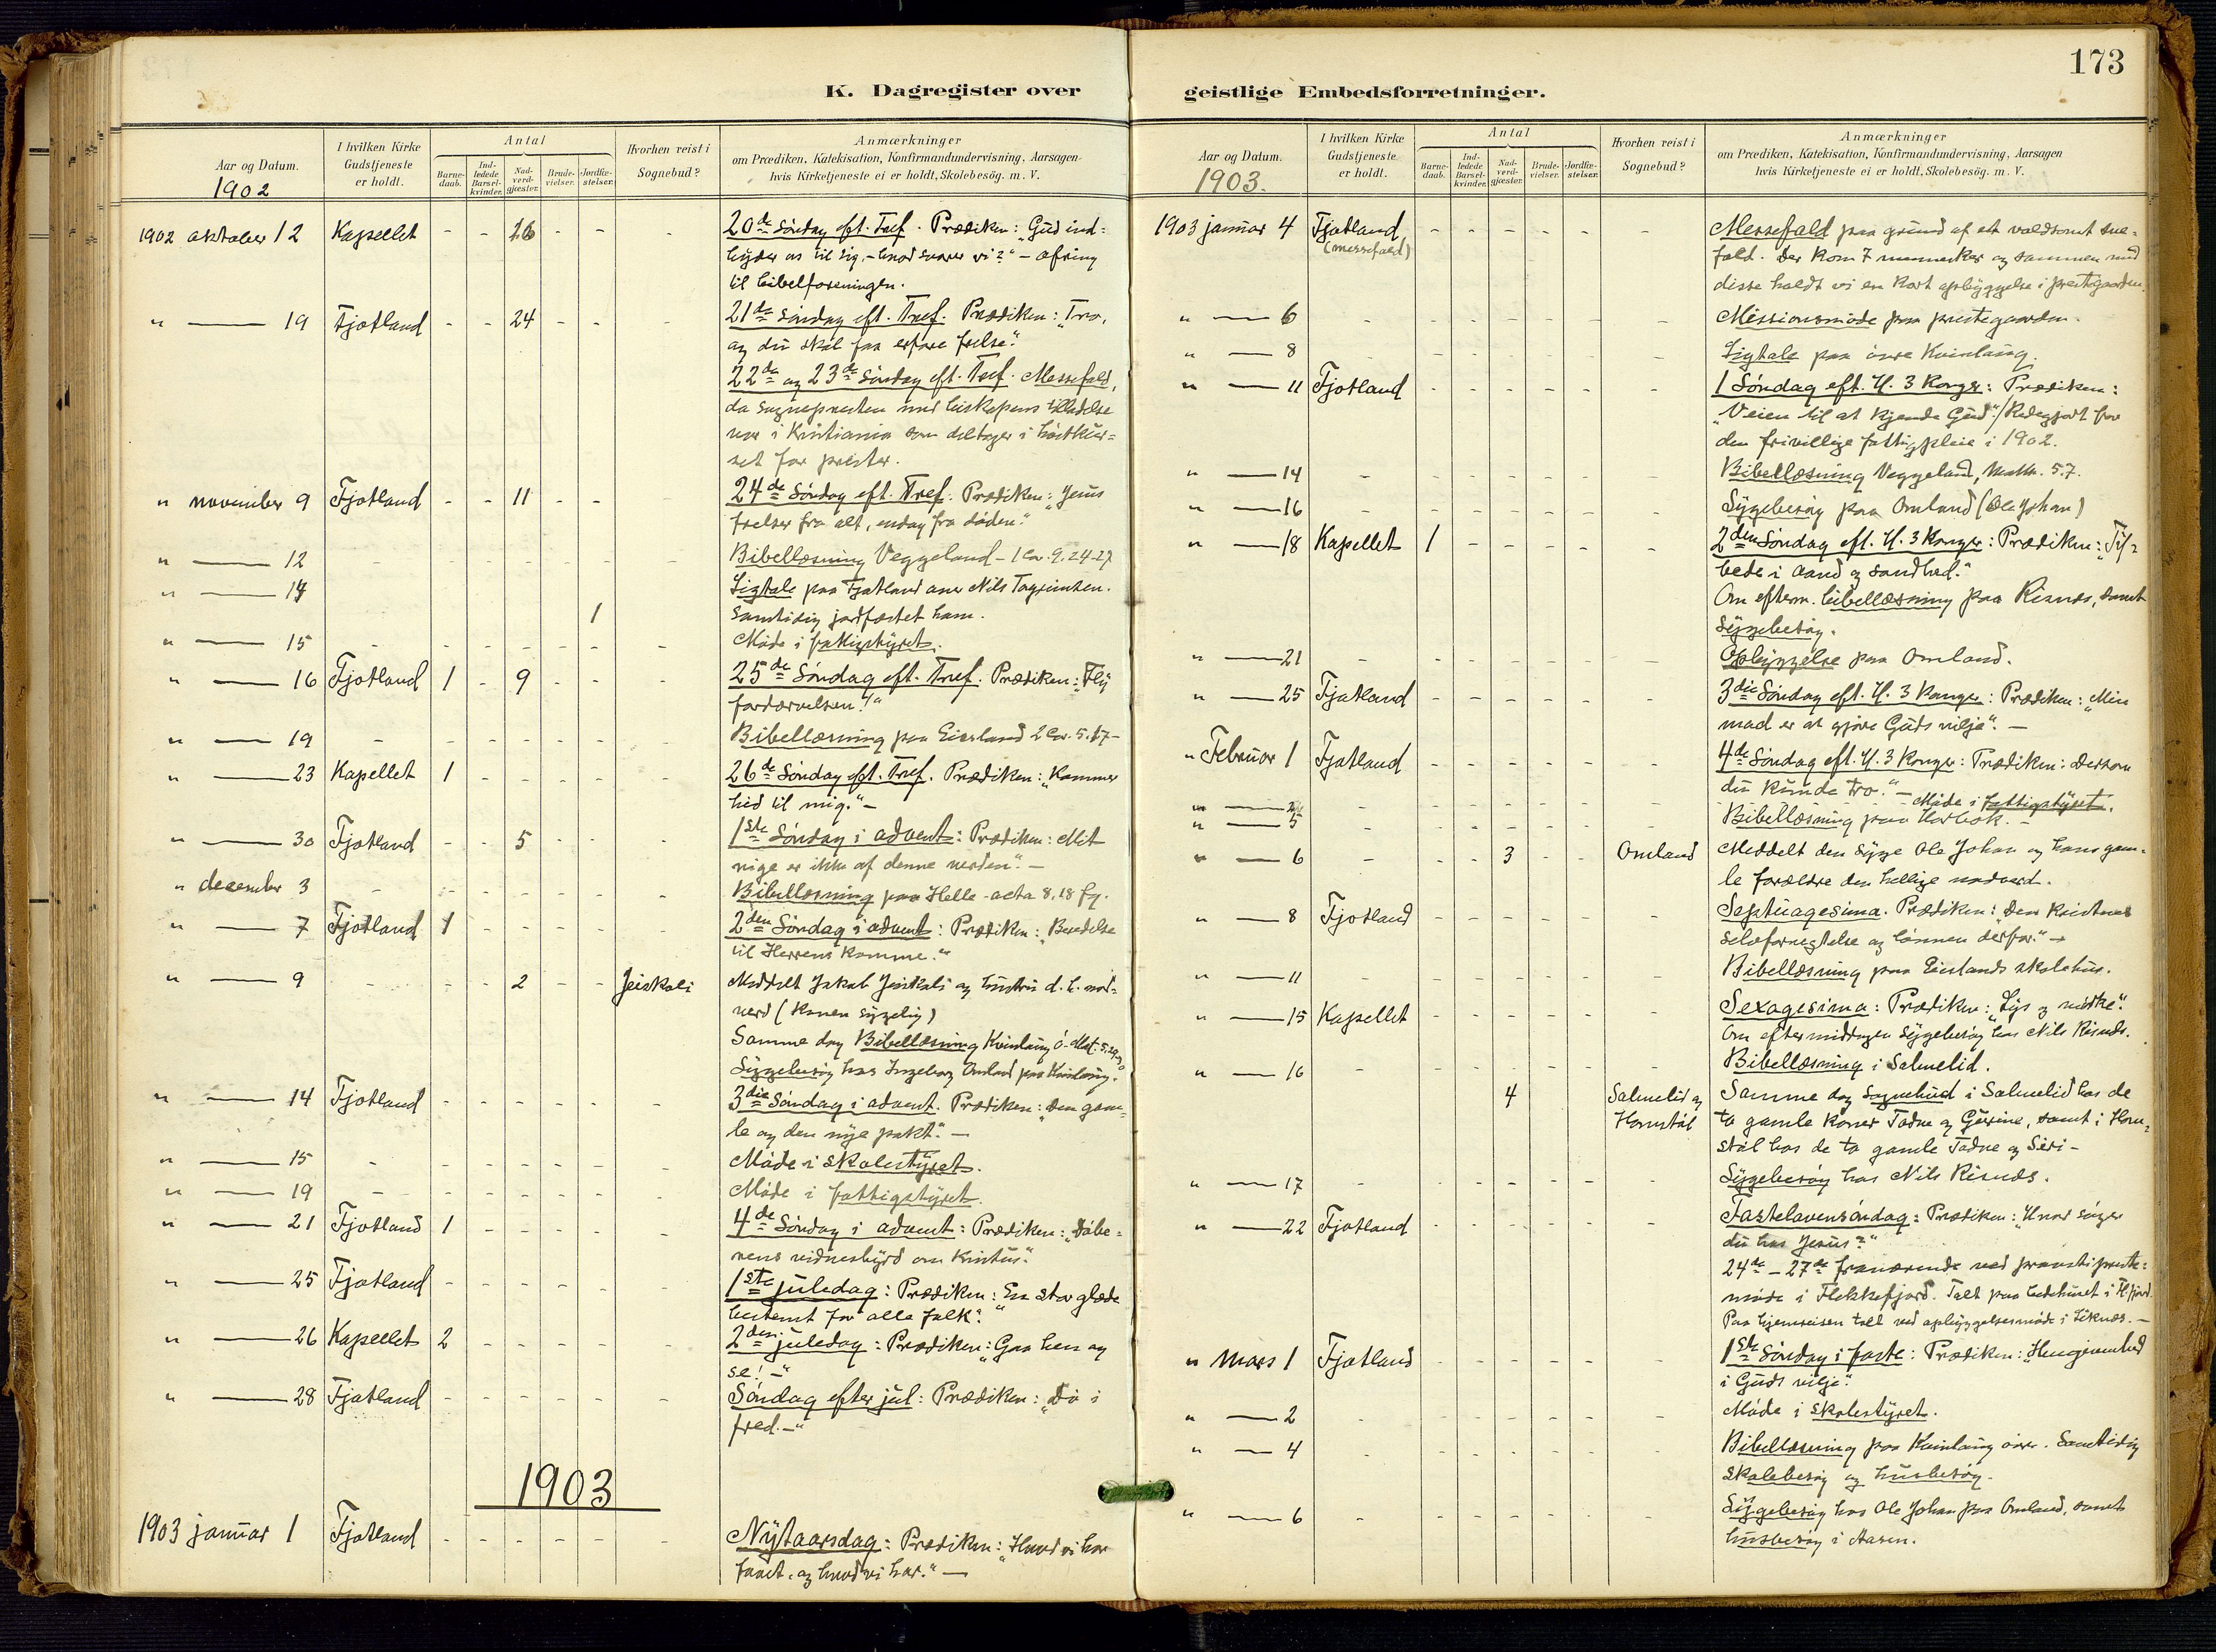 173
K. Dagregister over
geistlige Embedsforretninger.
Aar og Datum.
1902
I hvilken Kirke
Gudstjeneste
er holdt.
Antal
Barne-
daab.
Ind-
ledede
Barsel-
kvinder.
Nad-
verd-
gjæster.
Brude-
vielser.
Jordfæ-
stelser.
Hvorhen reist i
Sognebud?
Anmærkninger
om Prædiken, Katekisation, Konfirmandundervisning, Aarsagen
hvis Kirketjeneste ei er holdt, Skolebesög. m. V.
1902 oktober 12 Kapellet - - 26 - - - 20de Søndag eft. Tref. Prædiken: "Gud ind=
byder os til sig, - hvad svarer vi?" - ofring
til bibelforeningen.
" — 19 Fjotland - - 24 - - - 21de Søndag eft. Tref. Prædiken: "Tro,
og du skal faa erfare frelse."
22de og 23de Søndag eft. Tref. Messefald,
da sognepresten med biskopens tilladelse
var i Kristiania som deltager i høstkur=
set for prester.
" november 9 Fjotland - - 11 - - - 24de Søndag eft. Tref. Prædiken: "Jesus
frelser fra alt, endog fra døden."
" — 12 - - - - - - - Bibellæsning Veggeland - 1 Cor. 9. 24-27
" — 14 1 Ligtale paa Fjotland over Nils
samtidig jordfæstet ham.
" — 15 - - - - - - - Møde i fattigstyret.
" — 16 Fjotland 1 - 9 - - - 25de Søndag eft. Tref. Prædiken: "Fly
fordærvelsen!"
" — 19 - - - - - - - Bibellæsning paa Eiesland 2 Cor. 5. 17-
" — 23 Kapellet 1 - - - - - 26de Søndag eft. Tref. Prædiken: "Kommer
hid til mig." -
" — 30 Fjotland - - 5 - - - 1ste Søndag i advent: Prædiken: Mit
rige er ikke af denne verden." -
" december 3 - - - - - - - Bibellæsning paa Helle - acta 8, 18 fg.
" — 7 Fjotland 1 - - - - - 2den Søndag i advent: Prædiken: "Beredelse
til Herrens komme."
" — 9 - - - 2 - - Jeiskali Meddelt Jakob Jeiskali og hustru d. h. nad=
verd (konen sygelig)
Samme dag Bibellæsning Kvinlaug ö. Mat. 5.
Sygebesøg hos Ingeborg Omland paa Kvinlaug.
" — 14 Fjotland - - - - - - 3die Søndag i advent. Prædiken: "Den gam=
le og den nye pakt." -
" — 15 - - - - - - - Møde i skolestyret.
" — 19 - - - - - - - Møde i fattigstyret.
" — 21 Fjotland 1 - - - - - 4de Søndag i advent: Prædiken: "Døbe=
rens vidnesbyrd om Kristus."
" — 25 Fjotland - - - - - - 1ste juledag: Prædiken: "En stor glæde
bestemt for alle folk."
" — 26 Kapellet 2 - - - - - 2den juledag: Prædiken: "Gaa hen og
se! -"
" — 28 Fjotland - - - - - - Søndag efter jul: Prædiken: "Dø i
fred. -"
1903
1903 januar 1 Fjotland - - - - - - Nytaarsdag: Prædiken: "Hvad vi har
faaet, og hvad vi har." -
Aar og Datum.
1903.
I hvilken Kirke
Gudstjeneste
er holdt.
Antal
Barne-
daab.
Ind-
ledede
Barsel-
kvinder.
Nad-
verd-
gjæster.
Brude-
vielser.
Jordfæ-
stelser.
Hvorhen reist i
Sognebud?
Anmærkninger
om Prædiken, Katekisation, Konfirmandundervisning, Aarsagen
hvis Kirketjeneste ei er holdt, Skolebesög. m. V.
1903 januar 4 Fjotland (messefald) - - - - - - Messefald paa grund af et voldsomt sne=
fald. Der kom 7 mennesker og sammen med
disse holdt vi en kort opbyggelse i prestegaarden.
" — 6 - - - - - - - Missionsmøde paa prestegaarden.
" — 8 - - - - - - - Ligtale paa övre Kvinlaug.
" — 11 Fjotland - - - - - - 1 Søndag eft. H. 3 Konger: Prædiken:
"Veien til at kjende Gud." / Redegjort for
den frivillige fattigpleie i 1902.
" — 14 - - - - - - - Bibellæsning Veggeland, Matth. 5.7.
" — 16 - - - - - - - Sygebesøg paa Omland (Ole Johan)
" — 18 Kapellet 1 - - - - - 2den Søndag eft. H. 3 Konger: Prædiken: "Til=
bede i aand og sandhed."
Om efterm. bibellæsning paa Risnes, samt
sygebesøg.
" — 21 - - - - - - - Opbyggelse paa Omland.
" — 25 Fjotland - - - - - - 3die Søndag eft. H. 3 Konger: Prædiken: "Min
mad er at gjøre Guds vilje." -
" Februar 1 Fjotland - - - - - - 4de Søndag eft. H. 3 Konger: Prædiken: Dersom
du kunde tro." -
" — Møde i fattigstyret.
" — 5 - - - - - - - Bibellæsning paa -
" — 6 - - - 3 - - Omland Meddelt den syge Ole Johan og hans gam=
le forældre den hellige nadverd.
" — 8 Fjotland - - - - - - Septuagesima. Prædiken: "Den kristnes
selvfornegtelse og lønnen derfor." -
" — 11 - - - - - - - Bibellæsning paa Eieslands skolehus.
" — 15 Kapellet - - - - - - Sexagesima: Prædiken: "Lys og mørke."
Om eftermiddagen sygebesøg hos Nils Risnes.
" — 16 - - - - - - - Bibellæsning i Salmelid.
4 Salmelid og
Homstøl
Samme dag sognebud i Salmelid hos de
to gamle koner Tadne og Gurine, samt i Hom=
støl hos de to gamle Tadne og Siri -
" — 17 - - - - - - - Sygebesøg hos Nils Risnes.
" — 22 Fjotland - - - - - - Fastelavensøndag: Prædiken: "Hvad søger
du hos Jesus?"
24de - 27de fraværende ved provstiprete=
møde i Flekkefjord. Talt paa bedehuset i Fl.fjord.
Paa hjemreisen talt ved opbyggelsesmøde i Liknes. -
" Mars 1 Fjotland - - - - - - 1ste Søndag i faste: Prædiken: "Hengivenhed
i Guds vilje."
" — 2 - - - - - - - Møde i skolestyret.
" — 4 - - - - - - - Bibellæsning paa Kvinlaug övre. Samtidig
skolebesøg og husbesøg.
" — 6 - - - - - - - Sygebesøg hos Ole Johan paa Omland, samt
husbesøg i Aasen.